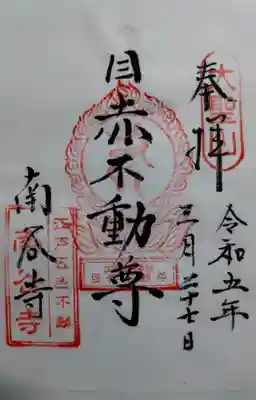 奉拝
大聖山
令和五年
三月二十七日
目赤不動尊
南谷寺
江戸五色不動
南谷寺